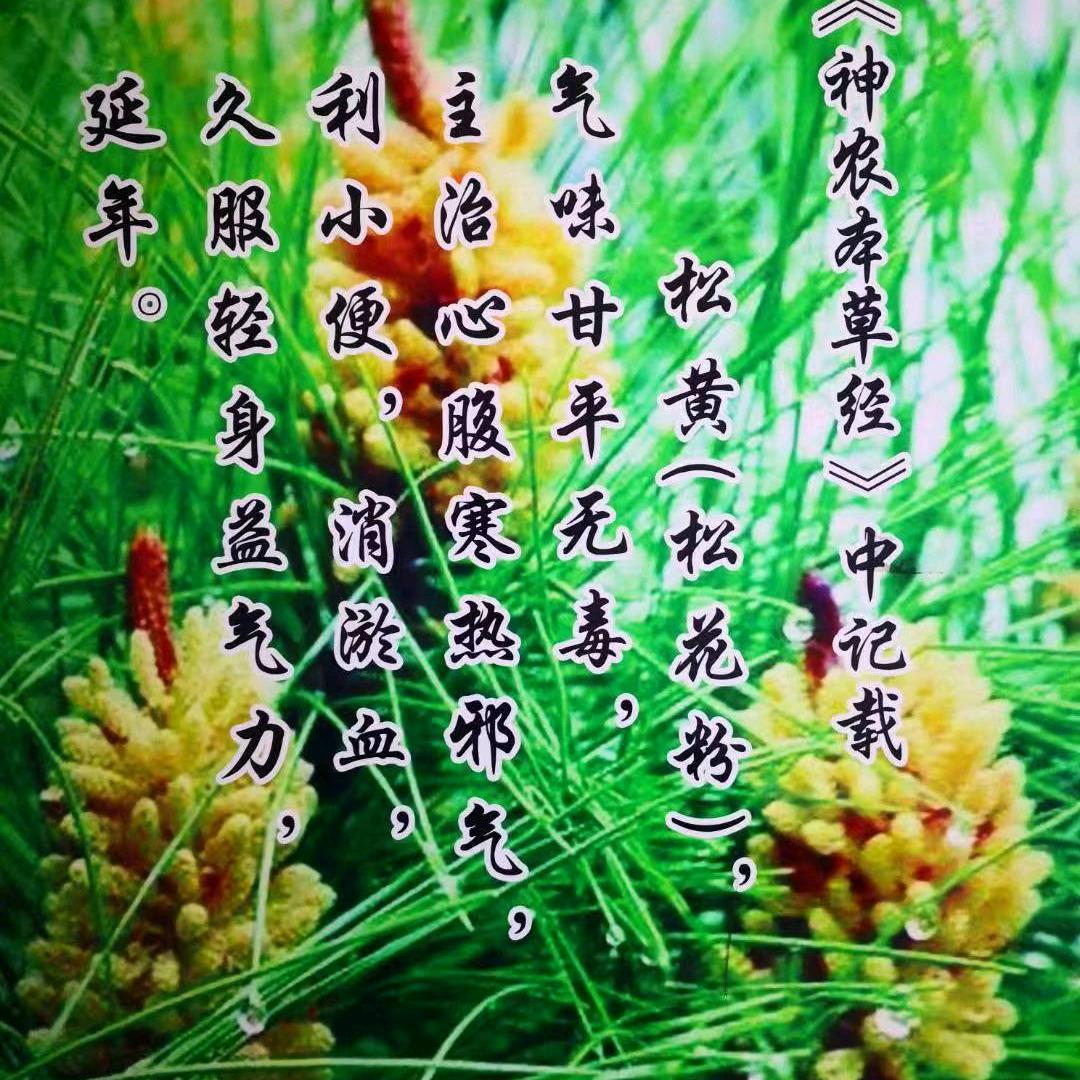 《神农本草经》中记载
松黄(松花粉),
气味甘平无毒,
主治心腹寒热邪气,
利小便,消淤血,
久服轻身益气力,
延年。